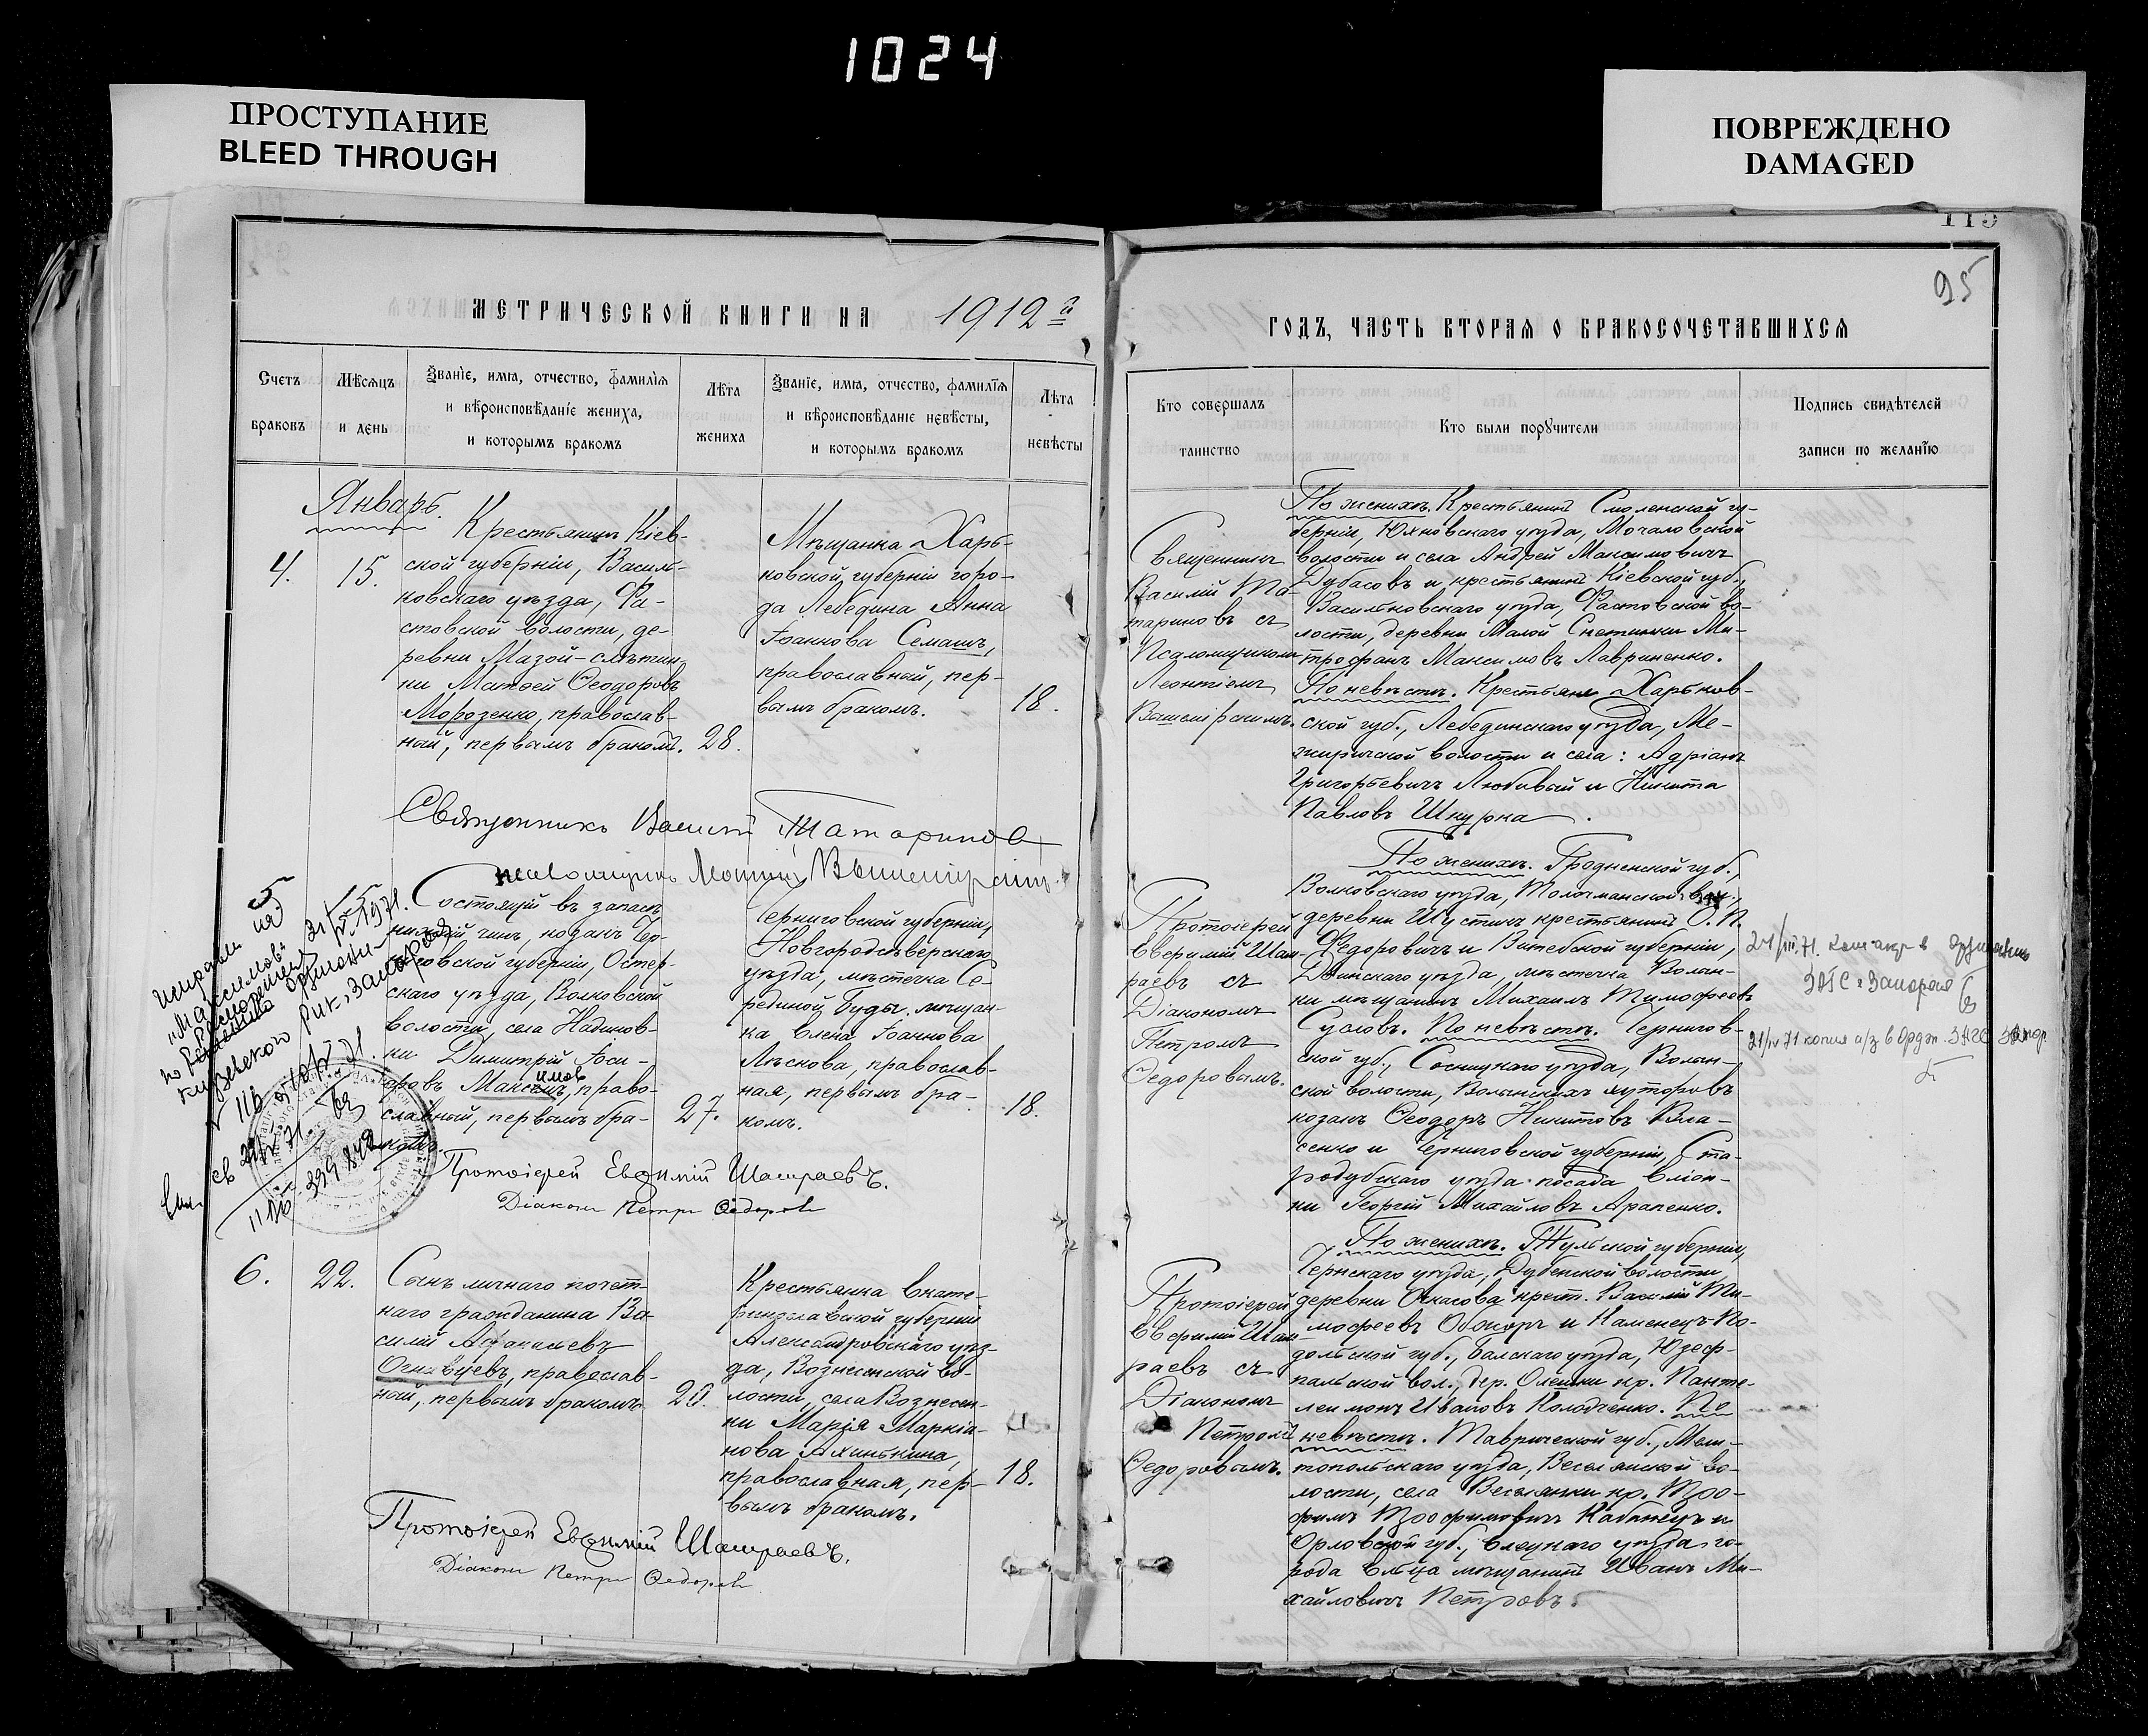 1024
ПРОСТУПАНИЕ
BLEED THROUGH
ПОВРЕЖДЕНО
DAMAGED
115
95
МЕТРИЧЕСКОЙ КНИГИ НА 1912й
ГОДЪ, ЧАСТЬ ВТОРАЯ О БРАКОСОЧЕТАВШИХСЯ
Счетъ
браковъ
Мѣсяцъ
и день
Званіе, имя, отчество, фамилія
и вѣроисповѣданіе жениха,
и которымъ бракомъ
Лѣта
жениха
Званіе, имя, отчество, фамилія
и вѣроисповѣданіе невѣсты,
и которымъ бракомъ
Лѣта
невѣсты
Кто совершалъ
таинство
Кто были поручители
Подпись свидѣтелей
записи по желанію
Январь.
4.
15.
Крестьянинъ Кіев-
ской губерніи, Василь-
ковскаго уѣзда, Фа-
стовской волости, де-
ревни Мазой-слѣтин-
ки Матѳей Ѳеодоровъ
Морозенко, православ-
ный, первымъ бракомъ.
28.
Мѣщанка Харь-
ковской губерніи горо-
да Лебедина Анна
Іоаннова Семашъ,
православный, пер-
вымъ бракомъ.
18.
Священникъ
Василій Та-
тариновъ съ
Псаломщикомъ
Леонтіемъ
По женихѣ. Крестьянинъ Смоленской гу-
берніи, Юхновскаго уѣзда, Мочаловской
волости и села Андрей Максимовичъ
Дубасовъ и крестьянинъ Кіевской губ.,
Васильковскаго уѣзда, Фастовской во-
лости, деревни Малой Снетинки Ми-
трофанъ Максимовъ Лавриненко.
По невѣстѣ. Крестьяне Харьков-
ской губ., Лебединскаго уѣзда, Ме-
жиричской волости и села: Адріанъ
Григорьевичъ Любивый и Никита
Павловъ Шкурка.
Священникъ Василій Татариновъ
псаломщикъ Леонтій
5
15
Состоящій въ запасѣ
нижній чинъ, козакъ Чер-
ниговской губерніи, Остер-
скаго уѣзда, Волковской
волости, села Надинов-
ки Димитрій Іси-
доровъ Максимовъ, право-
славный, первымъ бра-
комъ.
27.
Черниговской губерніи,
Новгородсѣверскаго
уѣзда, мѣстечка Се-
рединой Буды, мѣщан-
ка Елена Іоаннова
Лѣскова, православ-
ная, первымъ бра-
комъ.
18.
Протоіерей
Евѳимій Шаш-
раевъ съ
Діакономъ
Петромъ
Ѳедоровымъ.
По женихѣ. Гродненской губ.,
Волковскаго уѣзда, Толочманской вол.,
деревни Шустичъ крестьянинъ О. П.
Федоровичъ и Витебской губерніи,
Двинскаго уѣзда, мѣстечка Волын-
ки мѣщанинъ Михаилъ Тимофеевъ
Сусловъ. По невѣстѣ. Чернигов-
ской губ., Сосницкаго уѣзда, Волын-
ской волости, Волынскихъ хуторовъ
козакъ Ѳеодоръ Никитовъ Вла-
сенко и Черниговской губерніи, Ста-
родубскаго уѣзда посада Еліон-
ки Георгій Михайловъ Арапенко.
ЗАГС г. Запорож
21/IV 71 копия а/з в Ордж. ЗАГС Запор.
Протоіерей Евѳимій Шашраевъ.
Діаконъ Петръ Ѳедоровъ
6.
22.
Сынъ личнаго почет-
наго гражданина Ва-
силій Аѳанасьевъ
Огнивцевъ, православ-
ный, первымъ бракомъ
20.
Крестьянка Екате-
ринославской губерніи
Александровскаго уѣз-
да, Вознесенской во-
лости, села Вознесен-
ки Марія Маркіа-
нова Алхинькина,
православная, пер-
вымъ бракомъ.
18.
Протоіерей
Евѳимій Шаш-
раевъ съ
Діакономъ
Петромъ
Ѳедоровымъ.
По женихѣ. Тульской губерніи,
Чернскаго уѣзда, Дубенской волости
деревни Очкасова крест. Василій Ти-
мофеевъ и Каменецъ-По-
дольской губ., Балскаго уѣзда, Юзеф-
пальской вол., дер. Олешки кр. Панте-
леимонъ Ивановъ Колодченко. По
невѣстѣ. Таврической губ., Мели-
топольскаго уѣзда, Веселянской во-
лости, села Веселянки кр. Троо-
фимъ Троофимовичъ Кабанецъ и
Орловской губ., Елецкаго уѣзда, го-
рода Ельца мѣщанинъ Иванъ Ми-
хайловичъ Петровъ.
Протоіерей Евѳимій Шашраевъ.
Діаконъ Петръ Ѳедоровъ